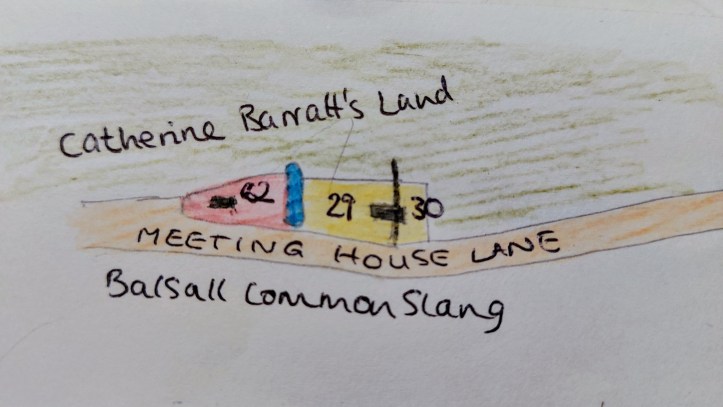 Catherine Barratt's Land
62 29 30
MEETING HOUSE LANE
Balsall Common Slang